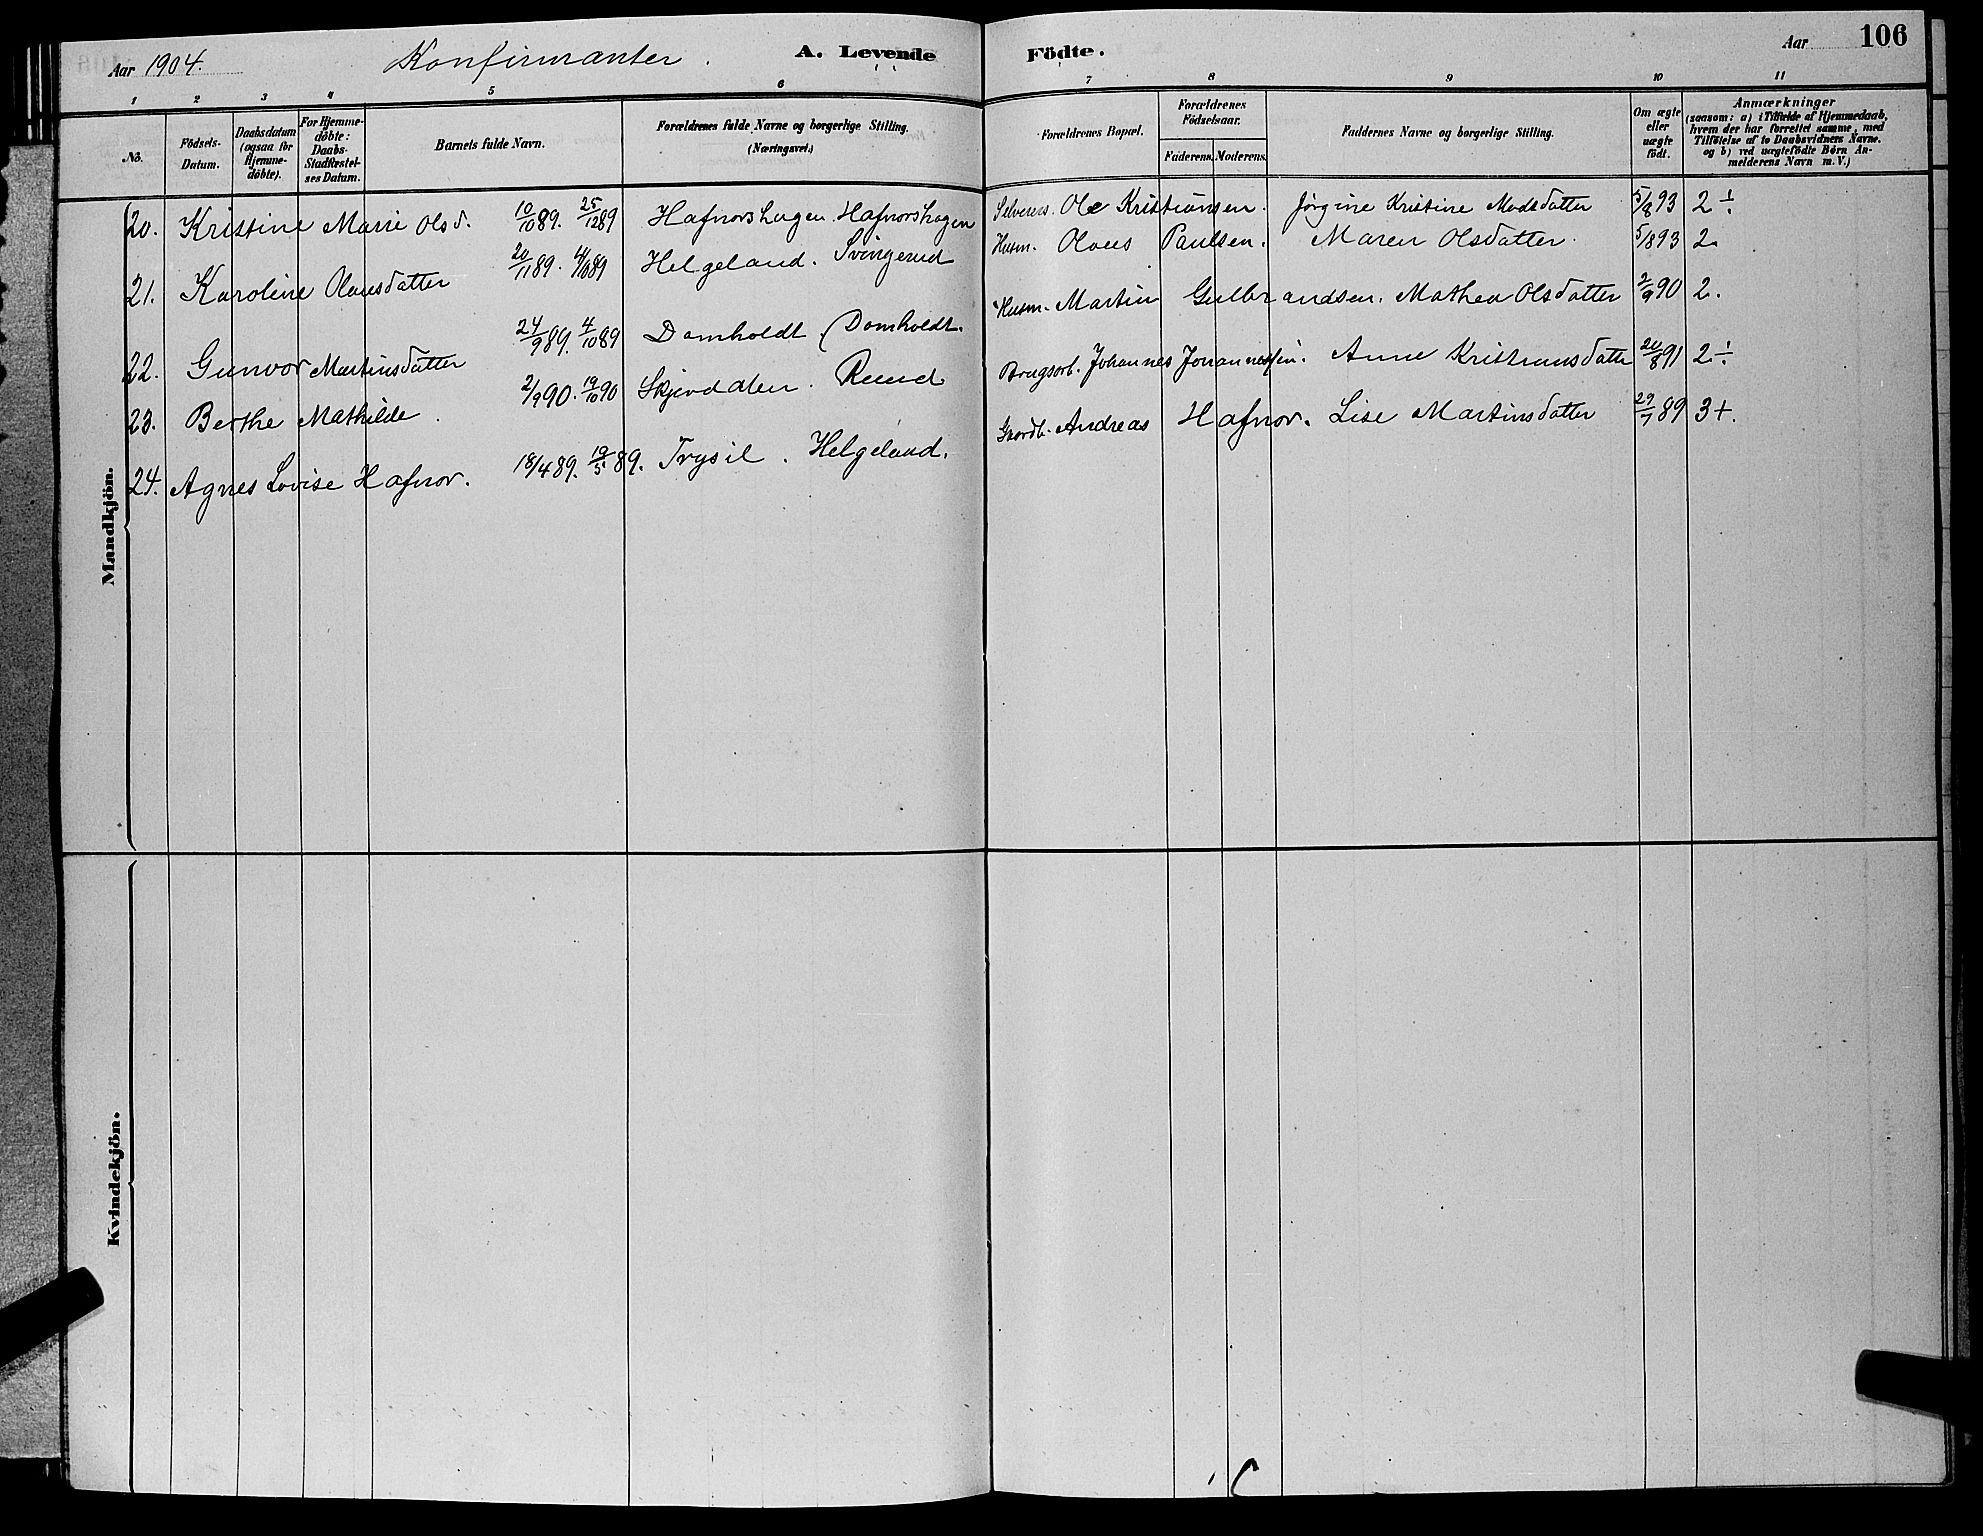 Aar 1904. Konfirmanter. A. Levende Födte. Aar 106
1 2 3 4 5 6 7 8 9 10 11
No. Födsels-Datum. Daabsdatum (ogsaa for Hjemme-döbte). For Hjemme-döbte: Daabs-Stadfæstel-ses Datum. Barnets fulde Navn. Forældrenes fulde Navne og borgerlige Stilling. (Næringsvei.) Forældrenes Bopæl. Forældrenes Födselsaar. Faderens. Moderens. Faddernes Navne og borgerlige Stilling. Om ægte eller uægte födt. Anmærkninger (saasom: a) i Tilfælde af Hjemmedaab, hvem der har forrettet samme, med Tilföielse af to Daabsvidners Navne, og b) ved uægtefödte Börn An-melderens Navn m. V.)
Mandkjön.
20. Kristine Marie Olsd. 10/10 89. 25/12 89 Hafnorshagen. Hafnorshagen Selveier. Ole Kristiansen. Jørgine Kristine Madsdatter 5/8 93 2÷
21. Karoline Olausdatter 20/11 89. Helgeland. Svingerud Husm. Olaus Paulsen. Maren Olsdatter. 5/8 93 2.
22. Gunvor Martinsdatter 24/9 89. 4/10 89 Domholdt. Domholdt. Husm. Martin Gulbrandsen. Mathea Olsdatter 2/9 90 2.
23. Berthe Mathilde. 2/9 90. 19/10 90 Skjerdalen. Ruud Brugsarb. Johannes Johannessen. Anne Kristiansdatter 20/8 91 2÷
24. Agnes Lovise Hafnor. 18/4 89. 19/5 89. Trysil. Helgeland. Gaardb. Andreas Hafnor. Lise Martinsdatter 29/7 89 3+.
Kvindekjön.